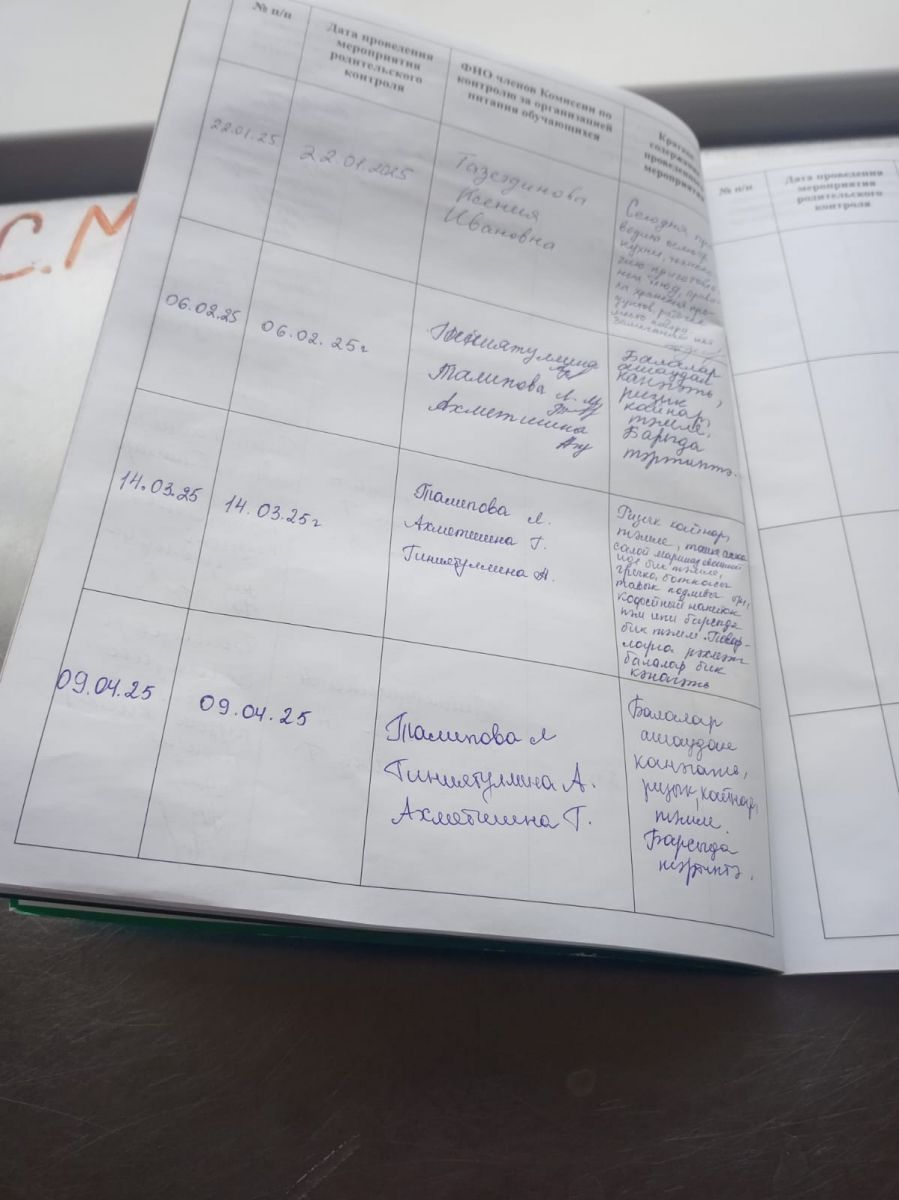 № п/п
Дата проведения
мероприятия
родительского
контроля
ФИО членов Комиссии по
контролю за организацией
питания обучающихся
Краткое
содержание
проведенного
мероприятия
22.01.25
22.01.2025
Тазетдинова
Ксения
Ивановна
Сегодня про
кухни,
06.02.25
06.02.25г
Гиниятуллина
Талипова Л. М
Ахметшина
Балалар
ашаудан
канәгать,
ризык
кайнар,
тәмле.
Барыда
тәртиптә.
14.03.25
14.03.25г
Талипова Л.
Ахметшина Г.
Гиниятуллина А.
Ризык кайнар,
тәмле,
иде бик тәмле,
гречка, боткасы
тавык подливы
Кофейный напиток
бик тәмле. Повар-
ларга рәхмәт
балалар бик
канәгать
09.04.25
09.04.25
Талипова Л
Гиниятуллина А.
Ахметшина Г.
Балалар
ашаудан
канәгать,
ризык кайнар,
тәмле.
Барыда
тәртиптә.
№ п/п
Дата проведения
мероприятия
родительского
контроля
С.М